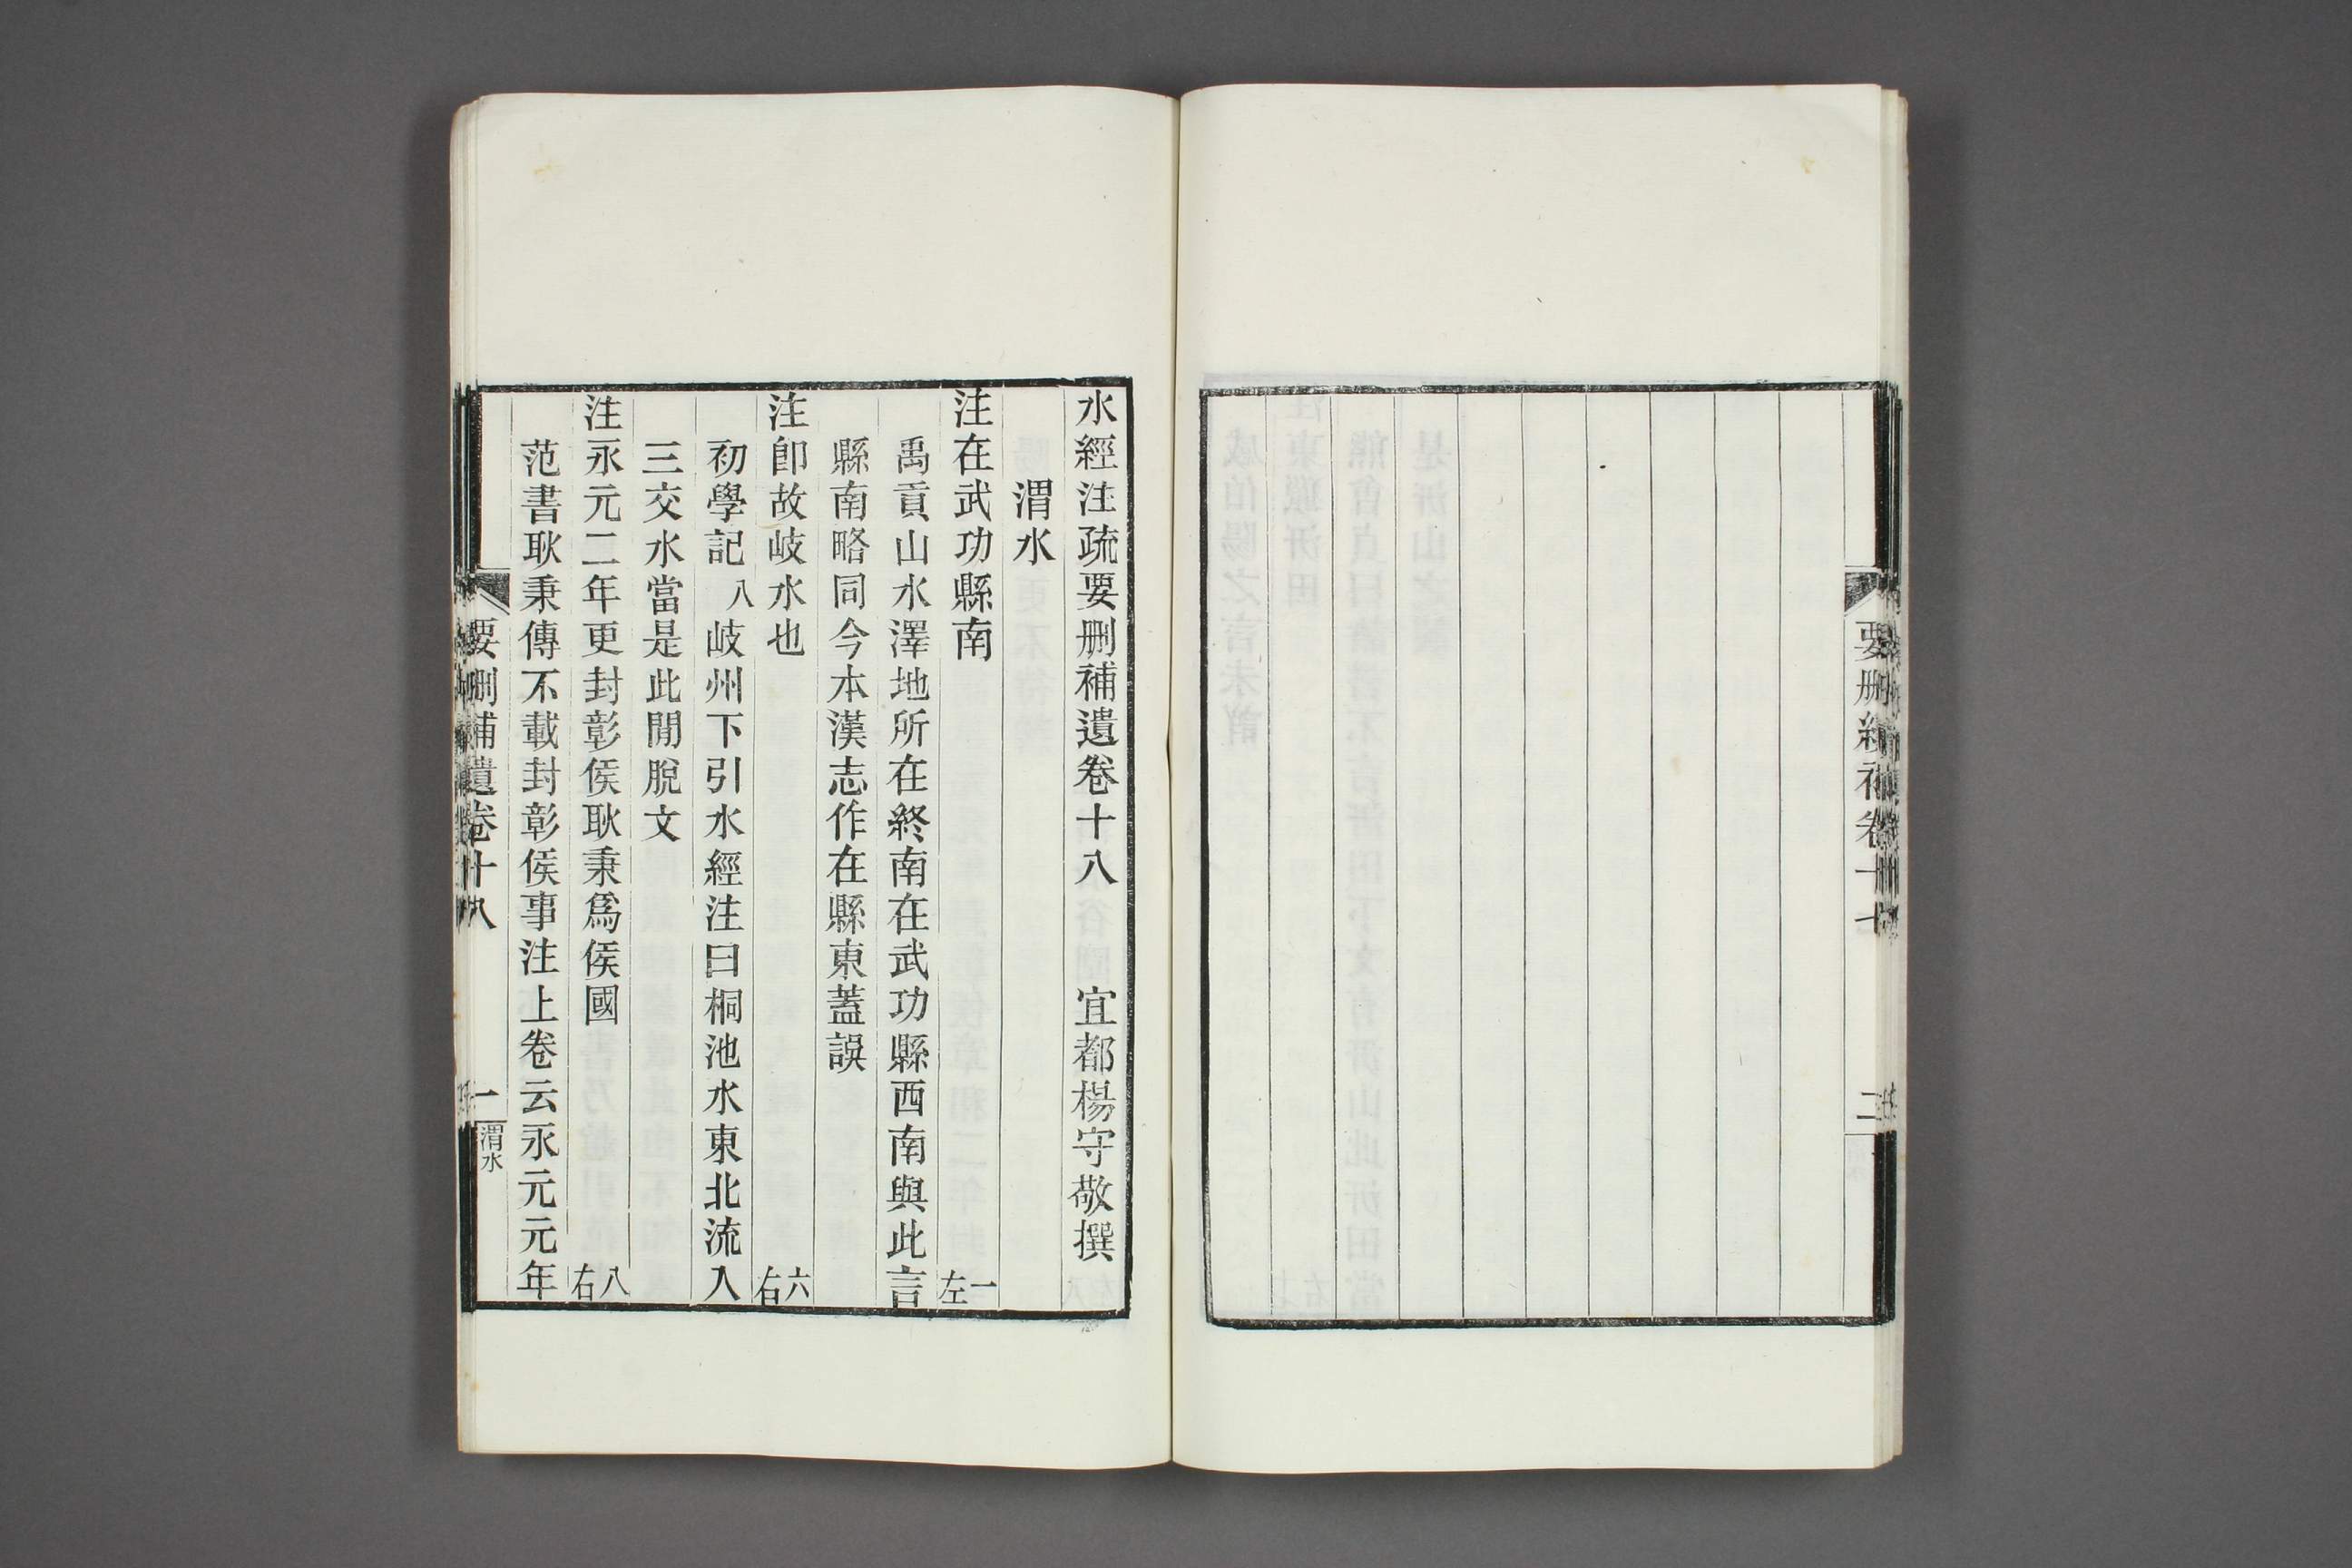 要刪續補卷十七
二
水經注疏要刪補遺卷十八　宜都楊守敬撰
渭水
注在武功縣南　一左
禹貢山水澤地所在終南在武功縣西南與此言
縣南略同今本漢志作在縣東蓋誤
注卽故岐水也　六右
初學記八岐州下引水經注曰桐池水東北流入
三交水當是此閒脫文
注永元二年更封彰侯耿秉爲侯國　八右
范書耿秉傳不載封彰侯事注上卷云永元元年
要刪補遺卷十八
一
渭水